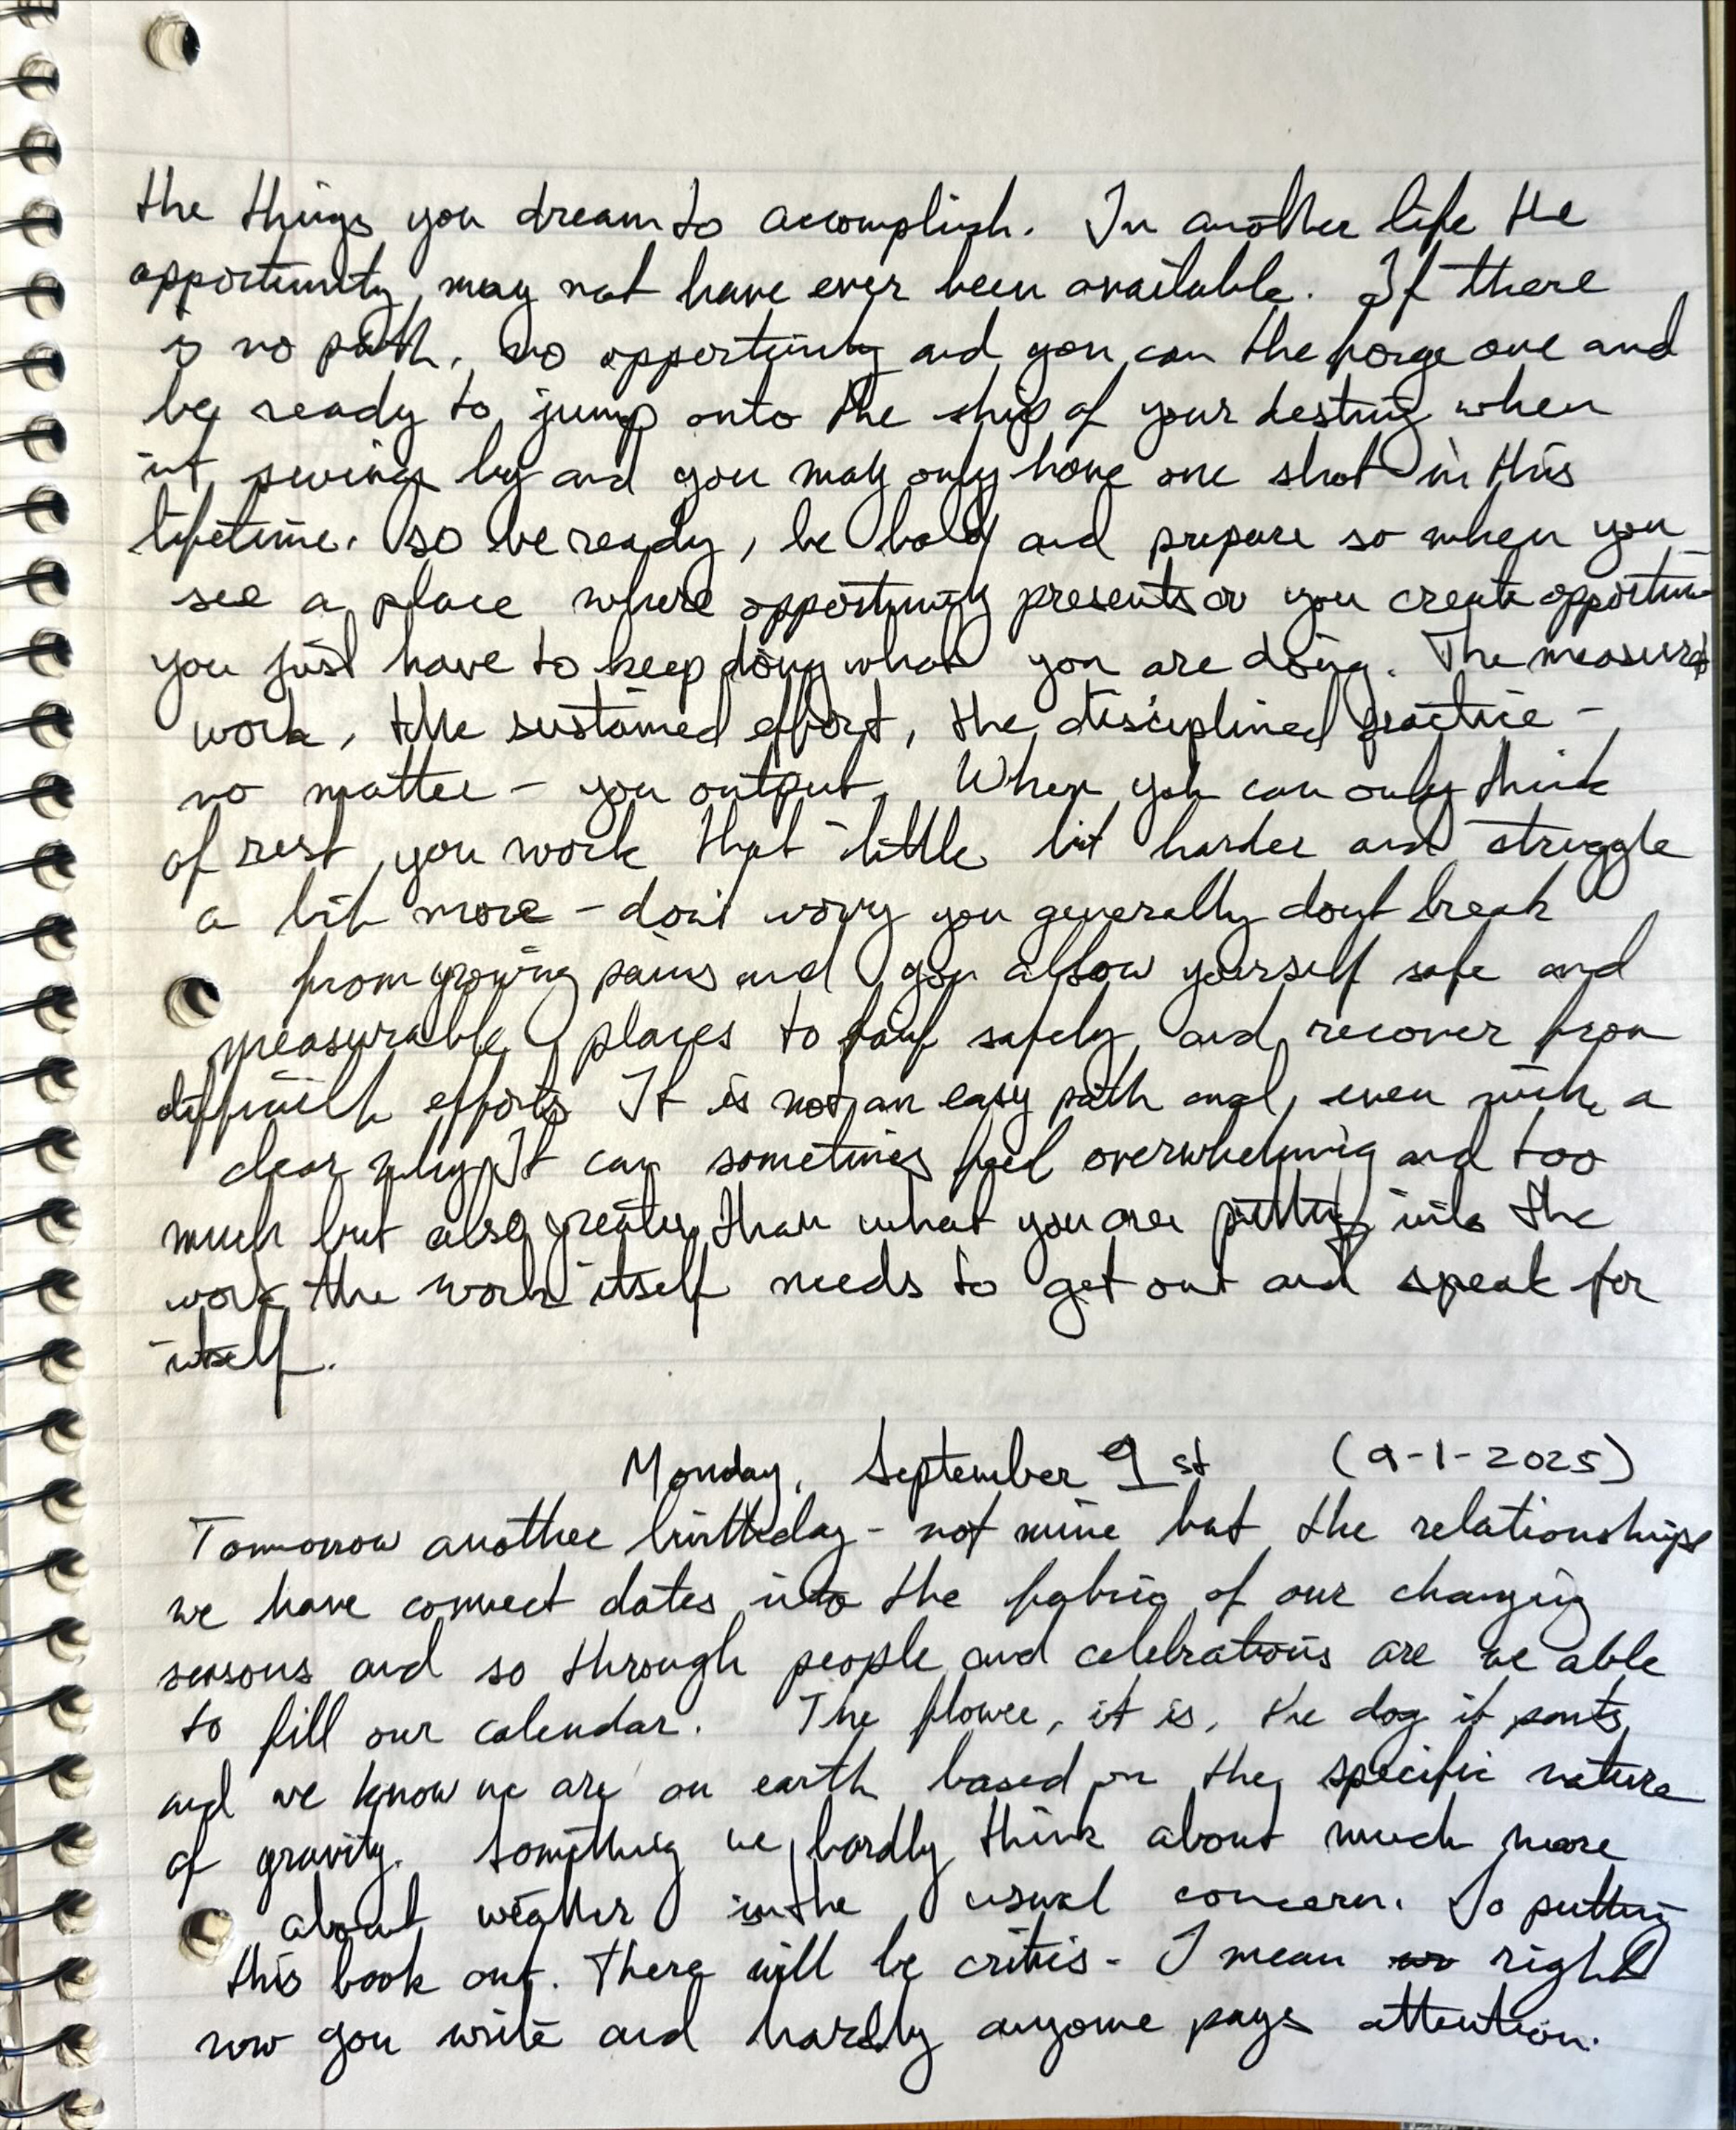 the things you dream to accomplish. In another life the
opportunity, may not have ever been available. If there
is no path, no opportunity and you can the forge one and
be ready to jump onto the ship of your destiny when
it swings by and you may only have one shot in this
lifetime. So be ready, be bold and prepare so when you
see a place where opportunity presents or you create opportun-
you just have to keep doing what you are doing. The measured
work, the sustained effort, the disciplined practice -
no matter - you output. When you can only think
of rest, you work that little bit harder and struggle
a bit more - don't worry you generally dont break
from growing pains and you allow yourself safe and
measurable places to fail safely and recover from
difficult efforts It is not an easy path and, even with a
clear why, It can sometimes feel overwhelming and too
much but also greater than what you are putting into the
work the work itself needs to get out and speak for
itself.
Monday, September 1st (9-1-2025)
Tomorrow another birthday - not mine but the relationships
we have connect dates into the fabric of our changing
seasons and so through people and celebrations are we able
to fill our calendar. The flower, it is, the dog it pants,
and we know we are on earth based on the specific nature
of gravity. Something we hardly think about much more
about weather in the usual concern. So putting
this book out. There will be critics - I mean right
now you write and hardly anyone pays attention.